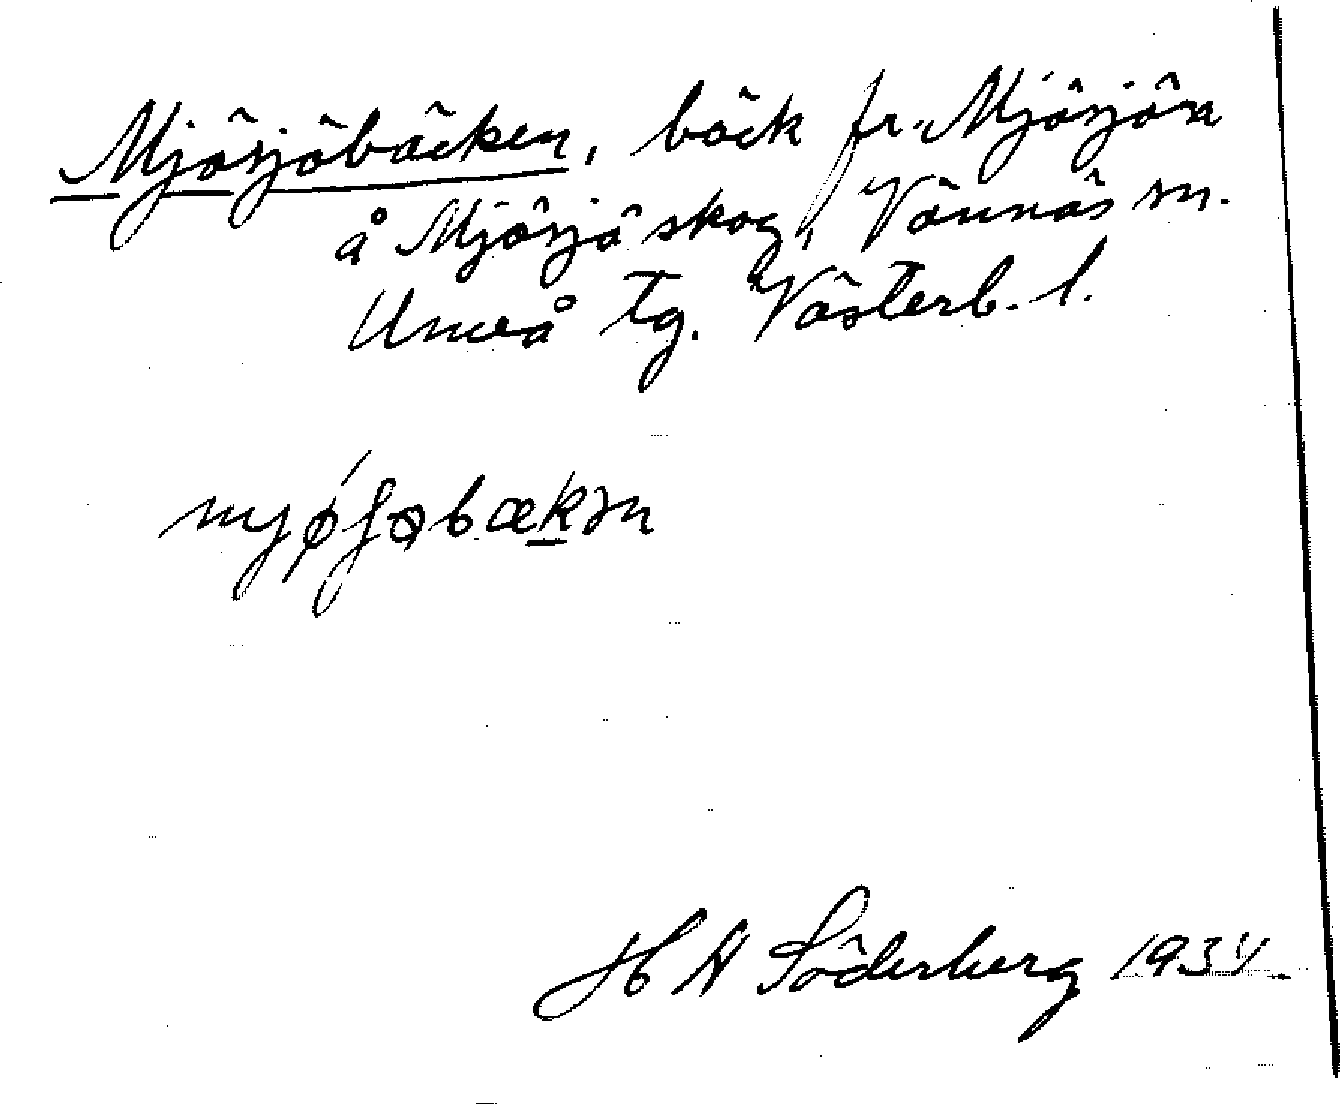 Mjösjöbäcken, bäck fr. Mjösjön
å Mjösjö skog, Vännäs sn.
Umeå tg. Västerb. l.
H A Söderberg 1934